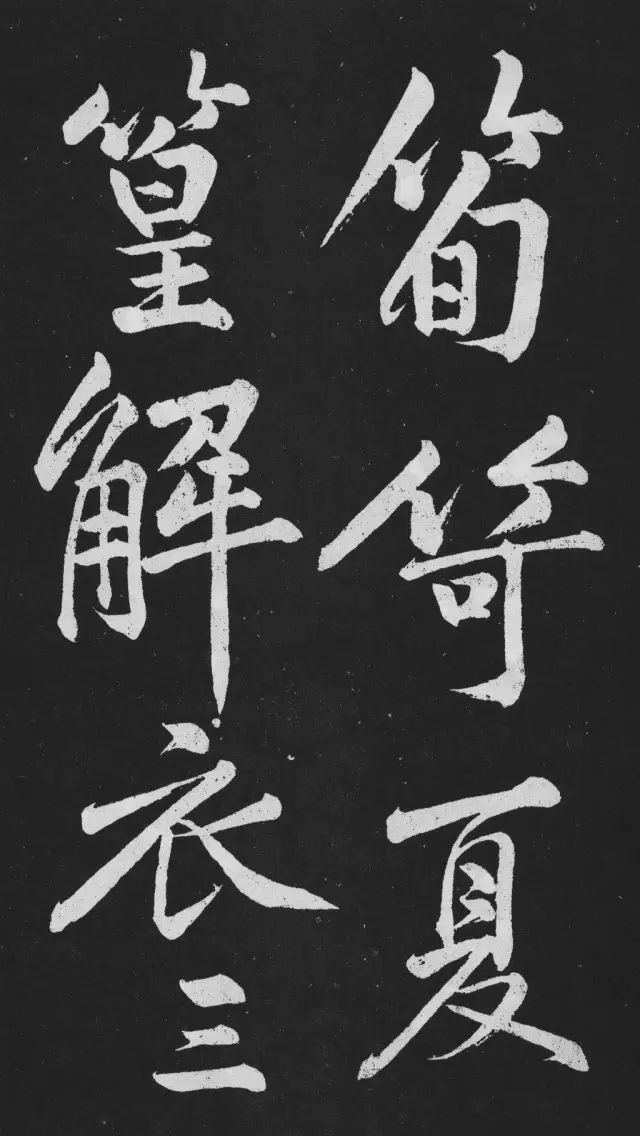 筍笴夏
篁解衣三